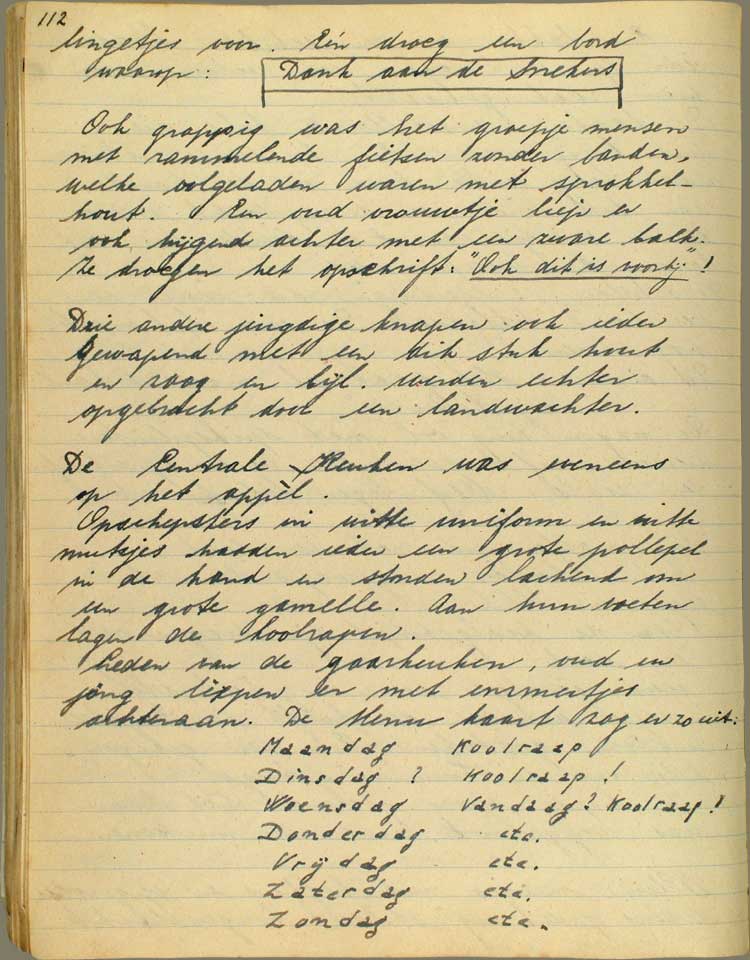 112
lingetjes voor. Eén droeg een bord
waarop: Dank aan de Sneekers
Ook grappig was het groepje mensen
met rammelende fietsen zonder banden,
welke volgeladen waren met sprokkel-
hout. Een oud vrouwtje liep er
ook hijgend achter met een zware balk.
Ze droegen het opschrift: "Ook dit is voorbij"!
Drie andere jeugdige knapen ook ieder
gewapend met een dik stuk hout
en zaag en bijl. werden echter
opgebracht door een landwachter.
De Centrale Keuken was eveneens
op het appèl.
Opschepsters in witte uniform en witte
mutsjes hadden ieder een grote pollepel
in de hand en stonden lachend om
een grote gamelle. Aan hun voeten
lagen de koolrapen.
Lieden van de gaarkeuken, oud en
jong liepen er met emmertjes
achteraan. De Menu kaart zag er zo uit:
Maandag Koolraap
Dinsdag ? Koolraap !
Woensdag Vandaag? Koolraap!
Donderdag etc.
Vrijdag etc.
Zaterdag etc.
Zondag etc.